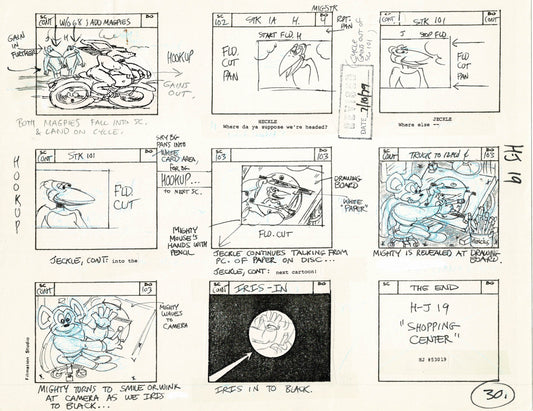 SC CONT W/G 68 ) ADD MAGPIES BG
GAIN IN FURTHER
J H
HOOKUP
GAINS OUT.
BOTH MAGPIES FALL INTO SC.
& LAND ON CYCLE.
MIGSTK
SC 102 STK 1A H. BG 4
START FLD. H
FLD CUT PAN
HECKLE
Where da ya suppose we're headed?
DATE 2/10/79
SC CONT STK 101 BG OUT
J STOP FLD.
FLD CUT PAN
JECKLE
Where else --
HOOKUP
SC CONT STK 101
FLD CUT
JECKLE, CONT: into the
SKY BG PANS INTO WHITE CARD AREA, FOR BG HOOKUP... TO NEXT SC.
MIGHTY MOUSE'S HANDS WITH PENCIL
SC 103 BG 103
FLD. CUT
DRAWING BOARD
WHITE "PAPER"
JECKLE CONTINUES TALKING FROM
PC. OF PAPER ON DISC...
JECKLE, CONT: next cartoon!
SC CONT BG 103
MIGHTY IS REVEALED AT DRAWING-
BOARD.
HJ 19
SC CONT BG 103
MIGHTY WAVES TO CAMERA
MIGHTY TURNS TO SMILE OR WINK
AT CAMERA AS WE IRIS
TO BLACK...
Filmation Studio
SC CONT IRIS-IN BG 103
IRIS IN TO BLACK.
SC THE END BG
H-J 19
"SHOPPING
CENTER"
HJ #53019
30.